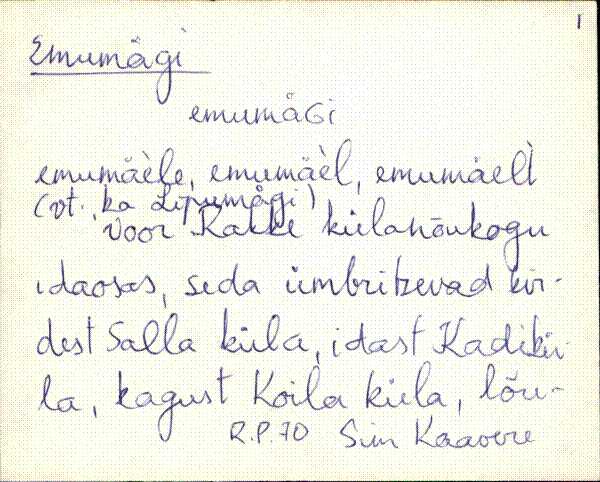 I
Emumägi
emumäGi
emumäèle, emumäèl, emumäelt
(vt. ka Lipumägi)
Voor Rakke külanõukogu
idaosas, seda ümbritsevad kir-
dest Salla küla, idast Kadikü-
la, kagust Koila küla, lõu-
R.P. 70 Siim Kaavere